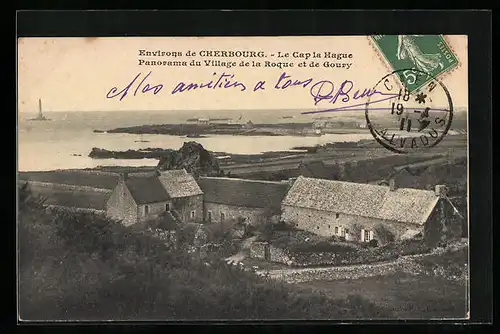 Environs de CHERBOURG. - Le Cap la Hague
Panorama du Village de la Roque et de Goury
Mes amitiés à tous
5
CAEN
18
19-
11
CALVADOS